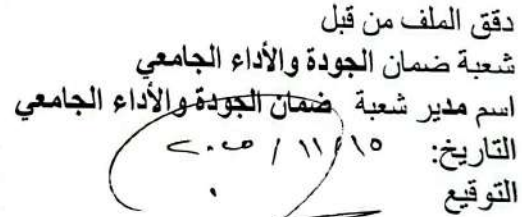 دقق الملف من قبل
شعبة ضمان الجودة والأداء الجامعي
اسم مدير شعبة ضمان الجودة والأداء الجامعي
التاريخ: ١٥ / ١١ / ٢٠٢٥
التوقيع